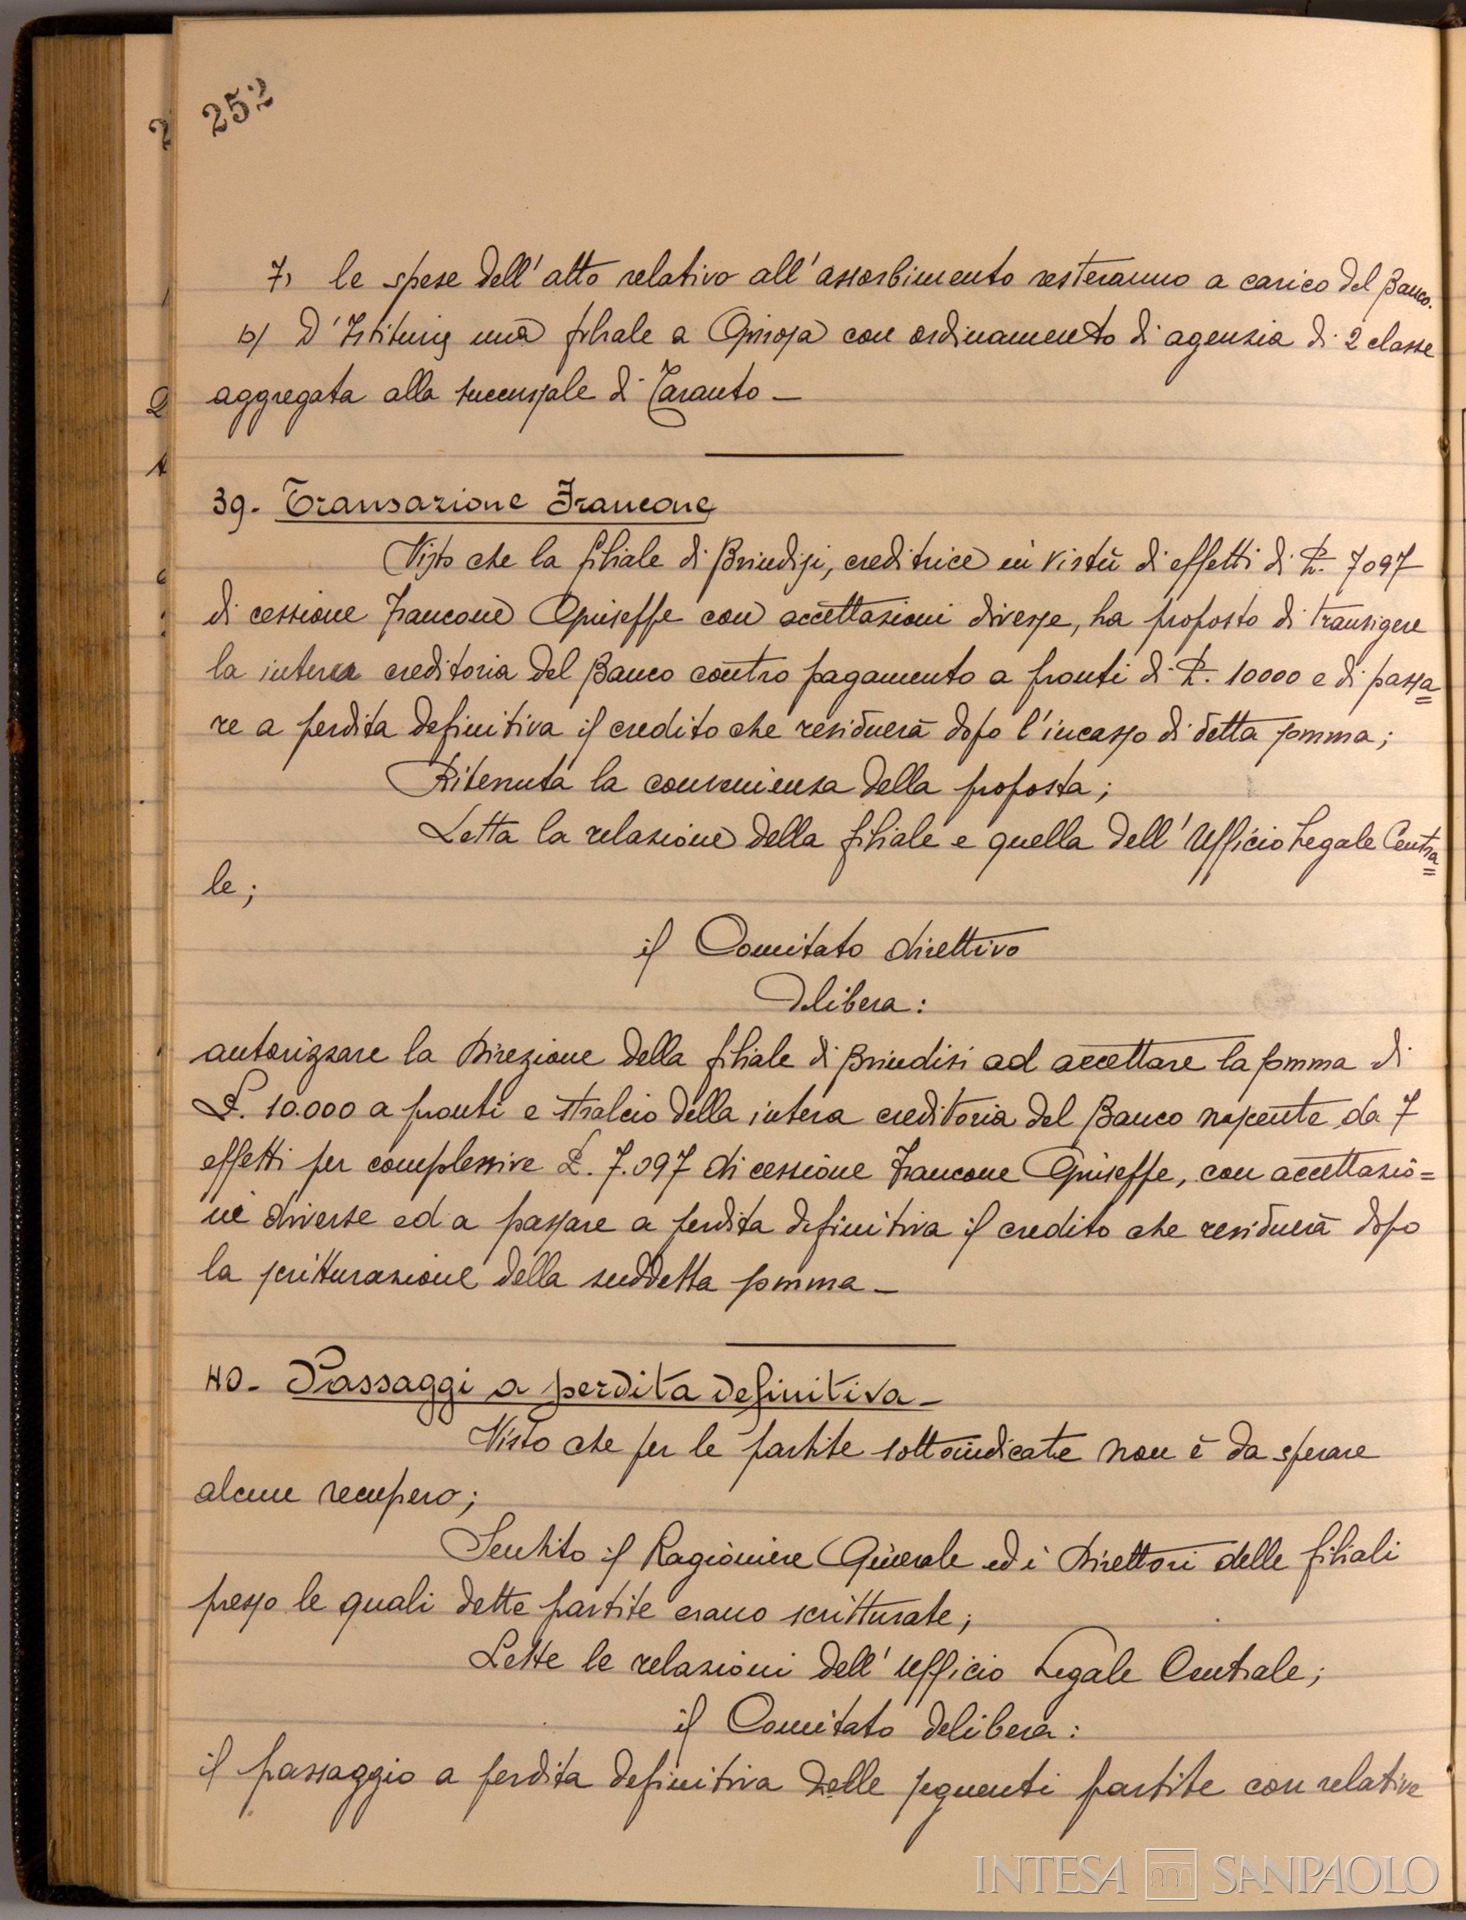 252
7) le spese dell'atto relativo all'assorbimento resteranno a carico del Banco.
b) D'Istituire una filiale a Ginosa con ordinamento di agenzia di 2 classe
aggregata alla succursale di Taranto —
39. Transazione Francone
Visto che la filiale di Brindisi, creditrice in virtù di effetti di L. 7097
di cessione Francone Giuseffe con accettazioni diverse, ha proposto di transigere
la intera creditoria del Banco contro pagamento a pronti di L. 10000 e di passa=
re a perdita definitiva il credito che residuerà dopo l'incasso di detta somma;
Ritenuta la convenienza della proposta;
Letta la relazione della filiale e quella dell'Ufficio Legale Centra=
le;
il Comitato direttivo
delibera:
autorizzare la Direzione della filiale di Brindisi ad accettare la somma di
L. 10.000 a pronti e stralcio della intera creditoria del Banco nascente da 7
effetti per complessive L. 7.097 di cessione Francone Giuseffe, con accettazio=
ni diverse ed a passare a perdita definitiva il credito che residuerà dopo
la scritturazione della suddetta somma —
40. Passaggi a perdita definitiva —
Visto che per le partite sottoindicate non è da sperare
alcun recupero;
Sentito il Ragioniere Generale ed i Direttori delle filiali
presso le quali dette partite erano scritturate;
Lette le relazioni dell'Ufficio Legale Centrale;
il Comitato delibera:
il passaggio a perdita definitiva delle seguenti partite con relative
INTESA SANPAOLO